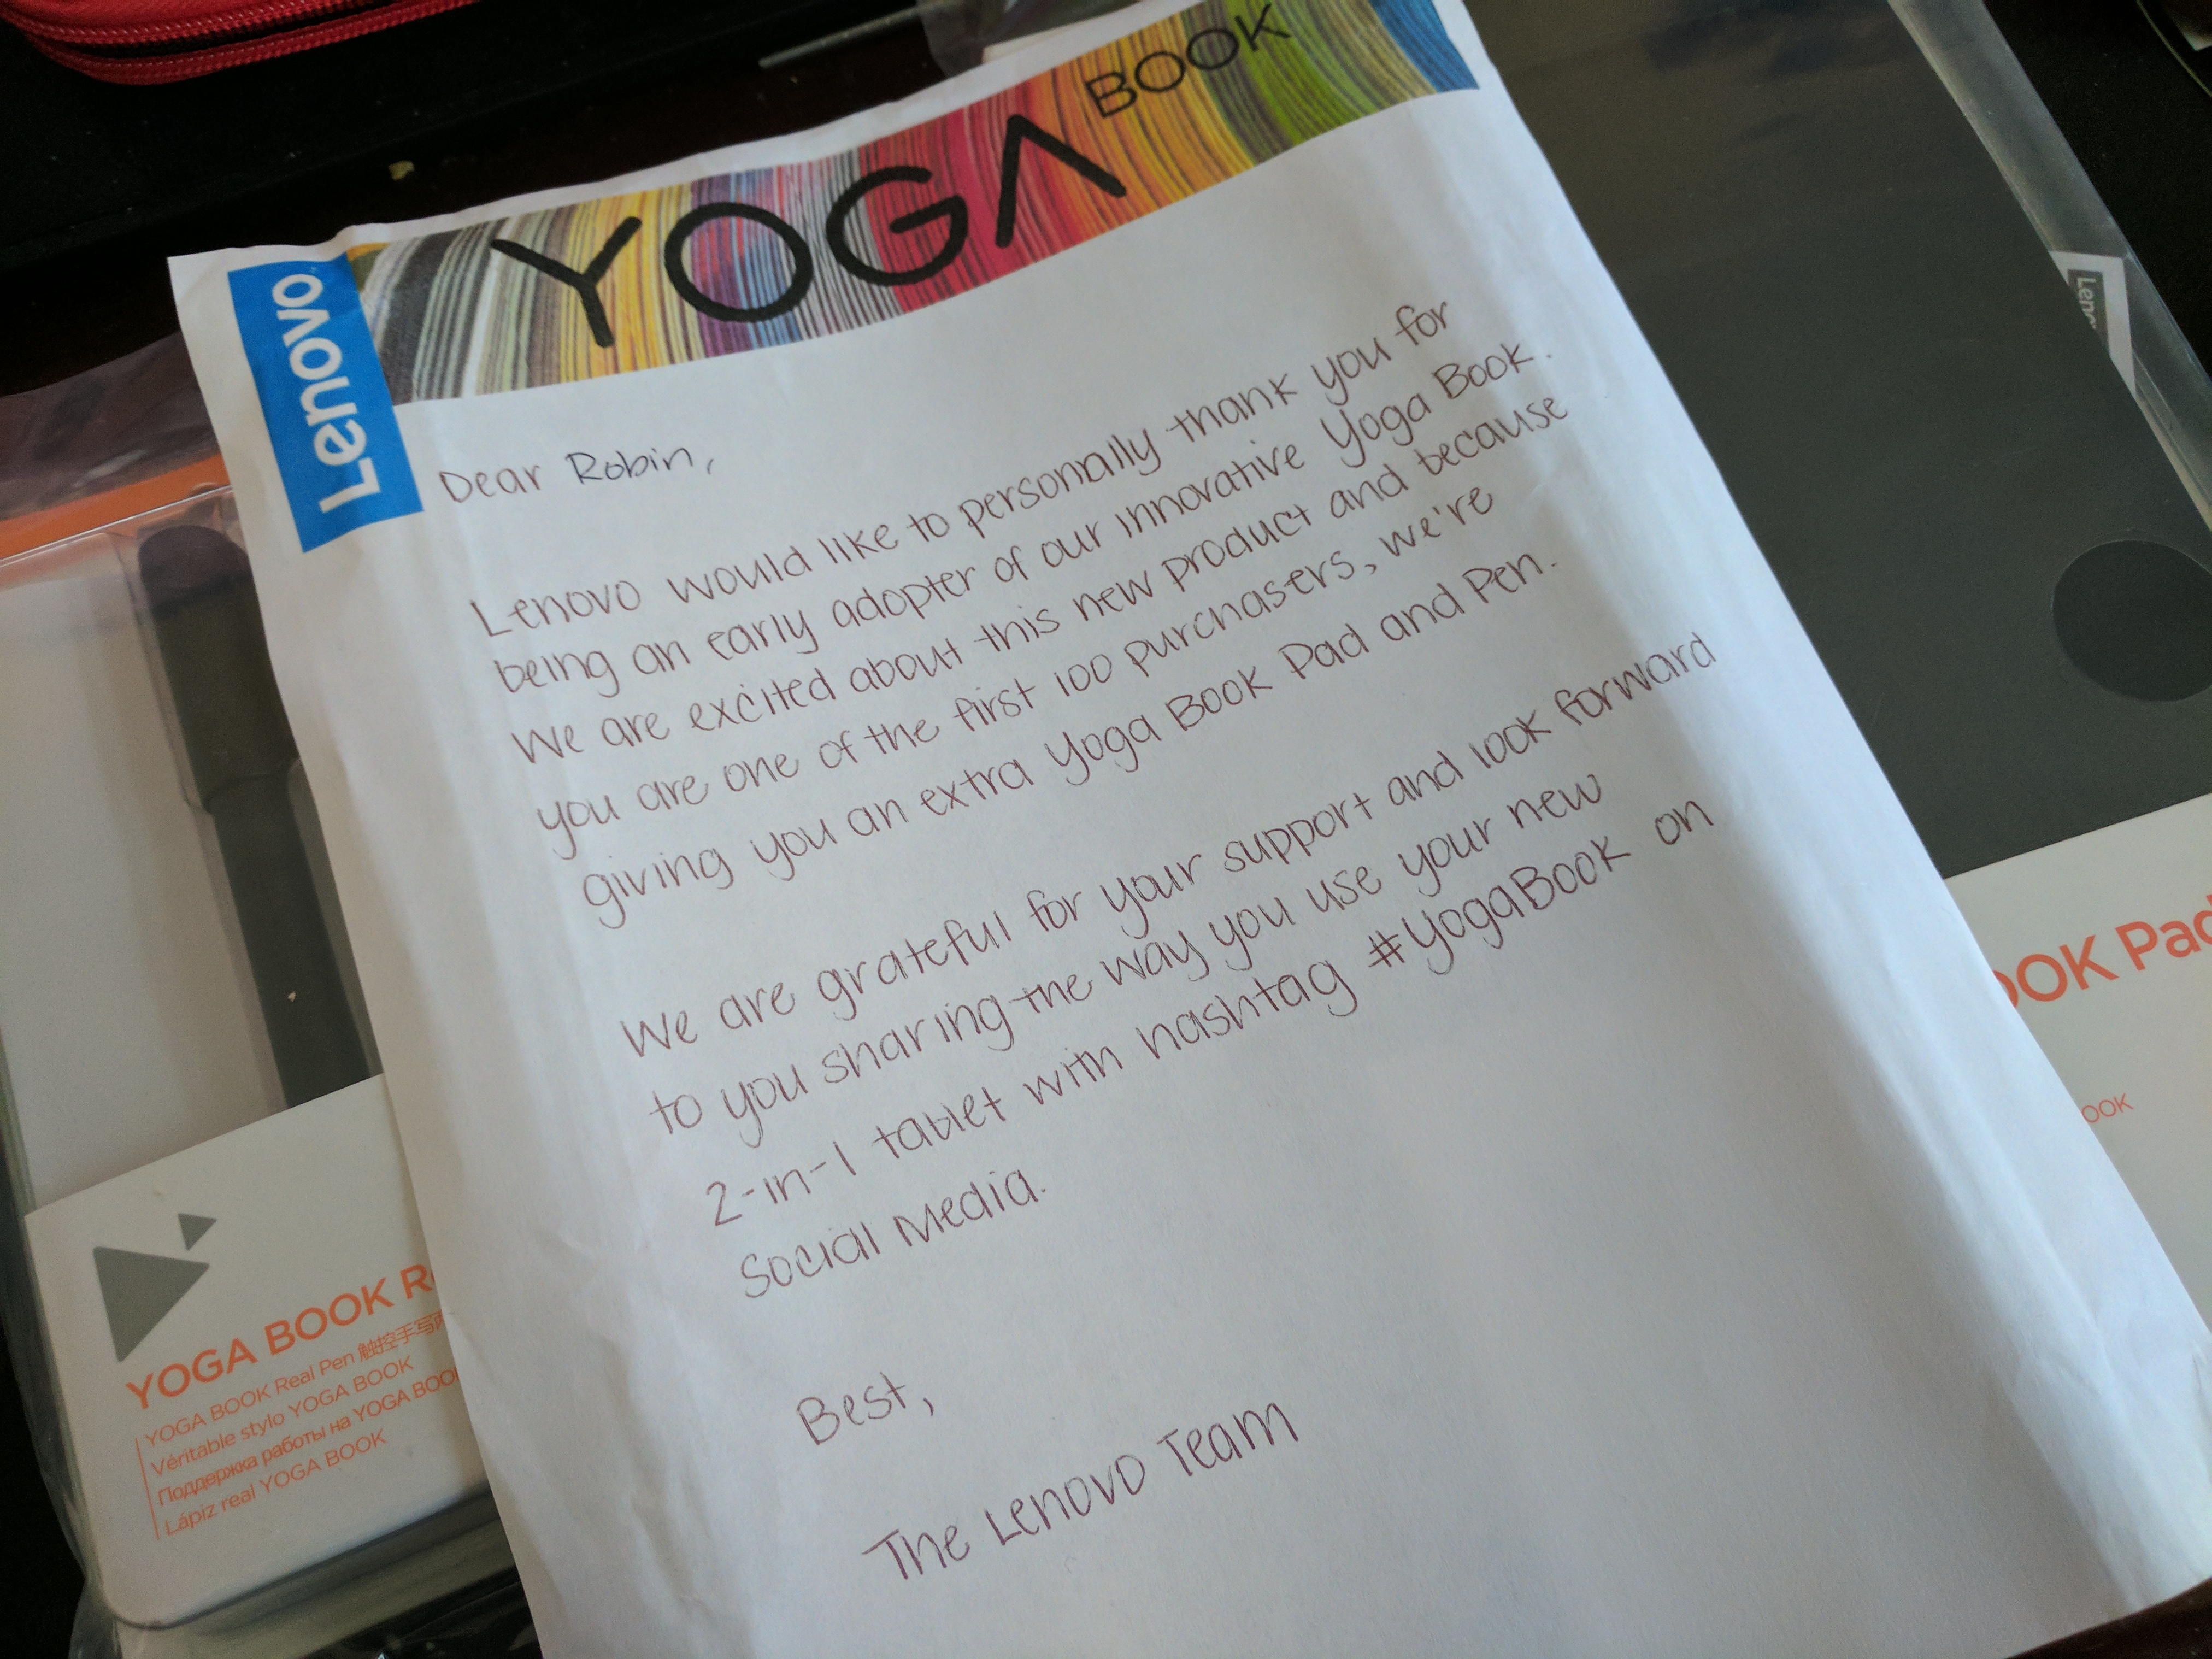 Lenovo
YOGA BOOK
Dear Robin,
Lenovo would like to personally thank you for
being an early adopter of our innovative Yoga Book.
We are excited about this new product and because
you are one of the first 100 purchasers, we're
giving you an extra Yoga Book Pad and Pen.
We are grateful for your support and look forward
to you sharing the way you use your new
2-in-1 tablet with hashtag #YogaBook on
Social Media.
Best,
The Lenovo Team
YOGA BOOK
YOGA BOOK Real Pen 触控手写
Véritable stylo YOGA BOOK
Поддержка работы на YOGA BOOK
Lápiz real YOGA BOOK
OOK Pad
OOK